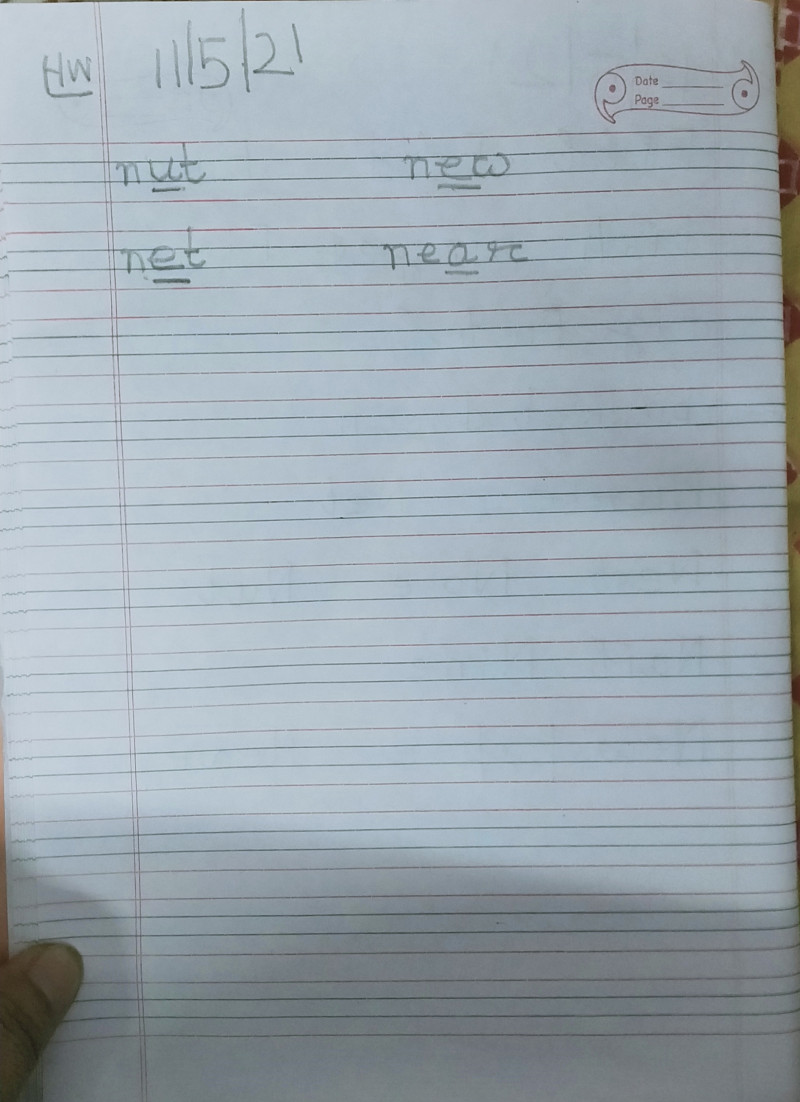 HW 11/5/21
Date
Page
nut new
net near